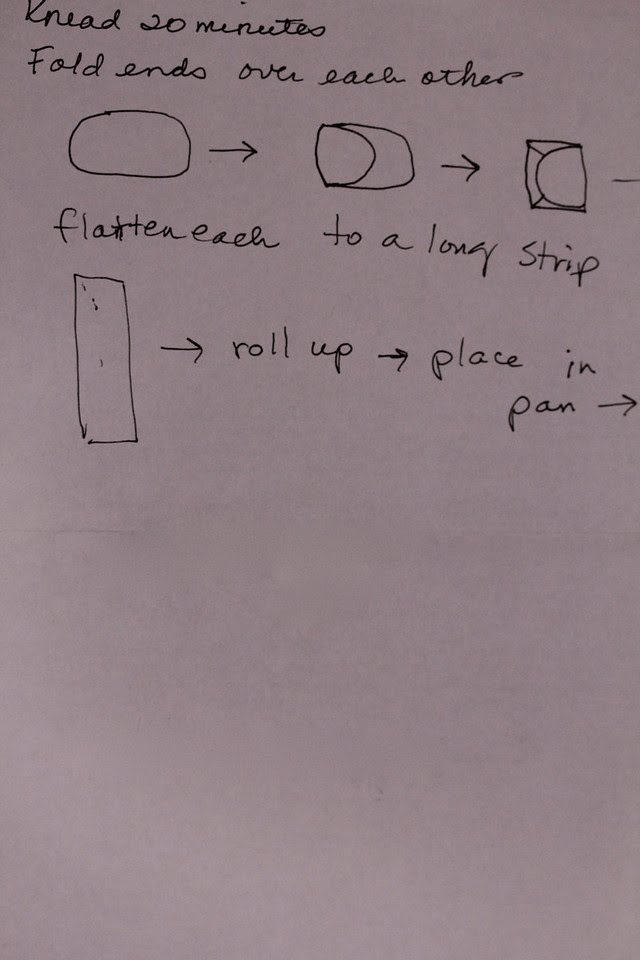 Knead 20 minutes
Fold ends over each other
→ →
flatten each to a long strip
→ roll up → place in
pan →